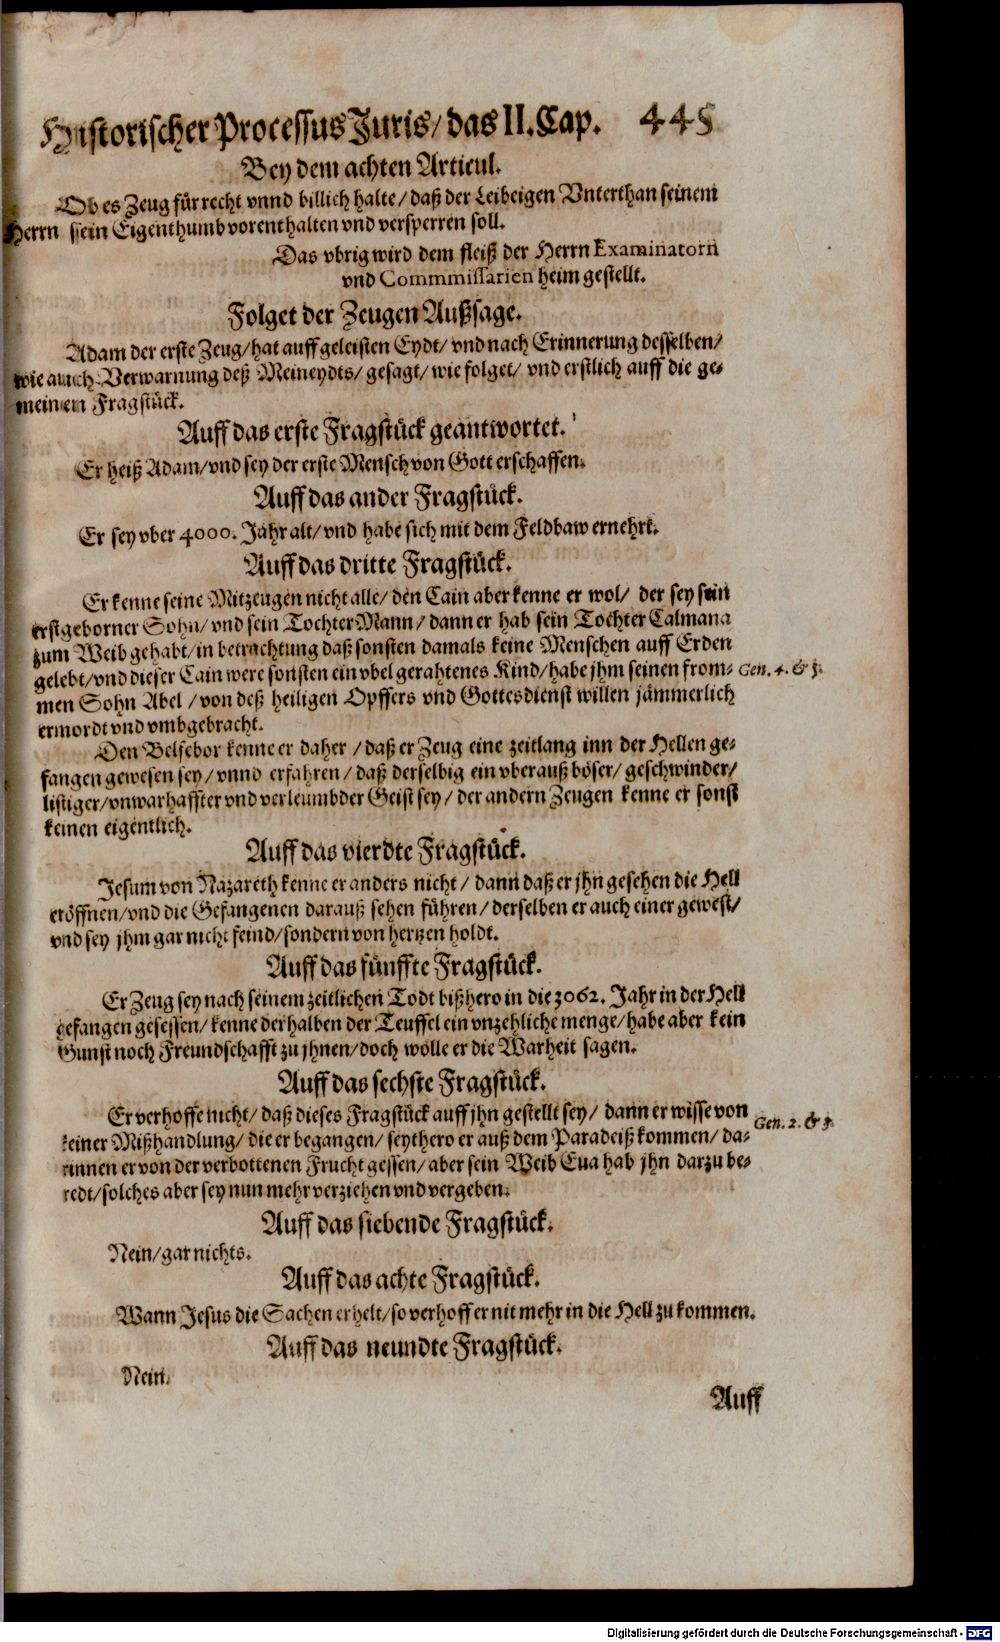 Historischer Processus Juris/ das II. Cap. 445
Bey dem achten Articul.
Ob es Zeug für recht vnnd billich halte/ daß der Leibeigen Vnterthan seinem
Herrn sein Eigenthumb vorenthalten vnd versperren soll.
Das vbrig wird dem fleiß der Herrn Examinatorn
vnd Commmissarien heim gestellt.
Folget der Zeugen Außsage.
Adam der erste Zeug/ hat auff geleisten Eydt/ vnd nach Erinnerung desselben/
wie auch Verwarnung deß Meineydts/ gesagt/ wie folget/ vnd erstlich auff die ge-
meinen Fragstück.
Auff das erste Fragstück geantwortet.
Er heiß Adam/ vnd sey der erste Mensch von Gott erschaffen.
Auff das ander Fragstück.
Er sey vber 4000. Jahr alt/ vnd habe sich mit dem Feldbaw ernehrt.
Auff das dritte Fragstück.
Er kenne seine Mitzeugen nicht alle/ den Cain aber kenne er wol/ der sey sein
erstgeborner Sohn/ vnd sein Tochter Mann/ dann er hab sein Tochter Calmana
zum Weib gehabt/ in betrachtung daß sonsten damals keine Menschen auff Erden
gelebt/ vnd dieser Cain were sonsten ein vbel gerahtenes Kind/ habe jhm seinen from- Gen. 4. & 5.
men Sohn Abel / von deß heiligen Opffers vnd Gottesdienst willen jämmerlich
ermordt vnd vmbgebracht.
Den Belsebor kenne er daher / daß er Zeug eine zeitlang inn der Hellen ge-
fangen gewesen sey/ vnnd erfahren/ daß derselbig ein vberauß böser/ geschwinder/
listiger/ vnwarhaffter vnd verleumbder Geist sey/ der andern Zeugen kenne er sonst
keinen eigentlich.
Auff das vierdte Fragstück.
Jesum von Nazareth kenne er anders nicht/ dann daß er jhn gesehen die Hell
eröffnen/ vnd die Gefangenen darauß sehen führen/ derselben er auch einer gewest/
vnd sey jhm gar nicht feind/ sondern von hertzen holdt.
Auff das fünffte Fragstück.
Er Zeug sey nach seinem zeitlichen Todt bißhero in die 3062. Jahr in der Hell
gefangen gesessen/ kenne derhalben der Teuffel ein vnzehliche menge/ habe aber kein
Gunst noch Freundschafft zu jhnen/ doch wölle er die Warheit sagen.
Auff das sechste Fragstück.
Er verhoffe nicht/ daß dieses Fragstück auff jhn gestellt sey/ dann er wisse von
keiner Mißhandlung/ die er begangen/ seythero er auß dem Paradeiß kommen/ da- Gen. 2. & 3.
rinnen er von der verbottenen Frucht gessen/ aber sein Weib Eua hab jhn darzu be-
redt/ solches aber sey nun mehr verziehen vnd vergeben.
Auff das siebende Fragstück.
Nein/ gar nichts.
Auff das achte Fragstück.
Wann Jesus die Sachen erhelt/ so verhoff er nit mehr in die Hell zu kommen.
Auff das neundte Fragstück.
Nein.
Auff
Digitalisierung gefördert durch die Deutsche Forschungsgemeinschaft - DFG